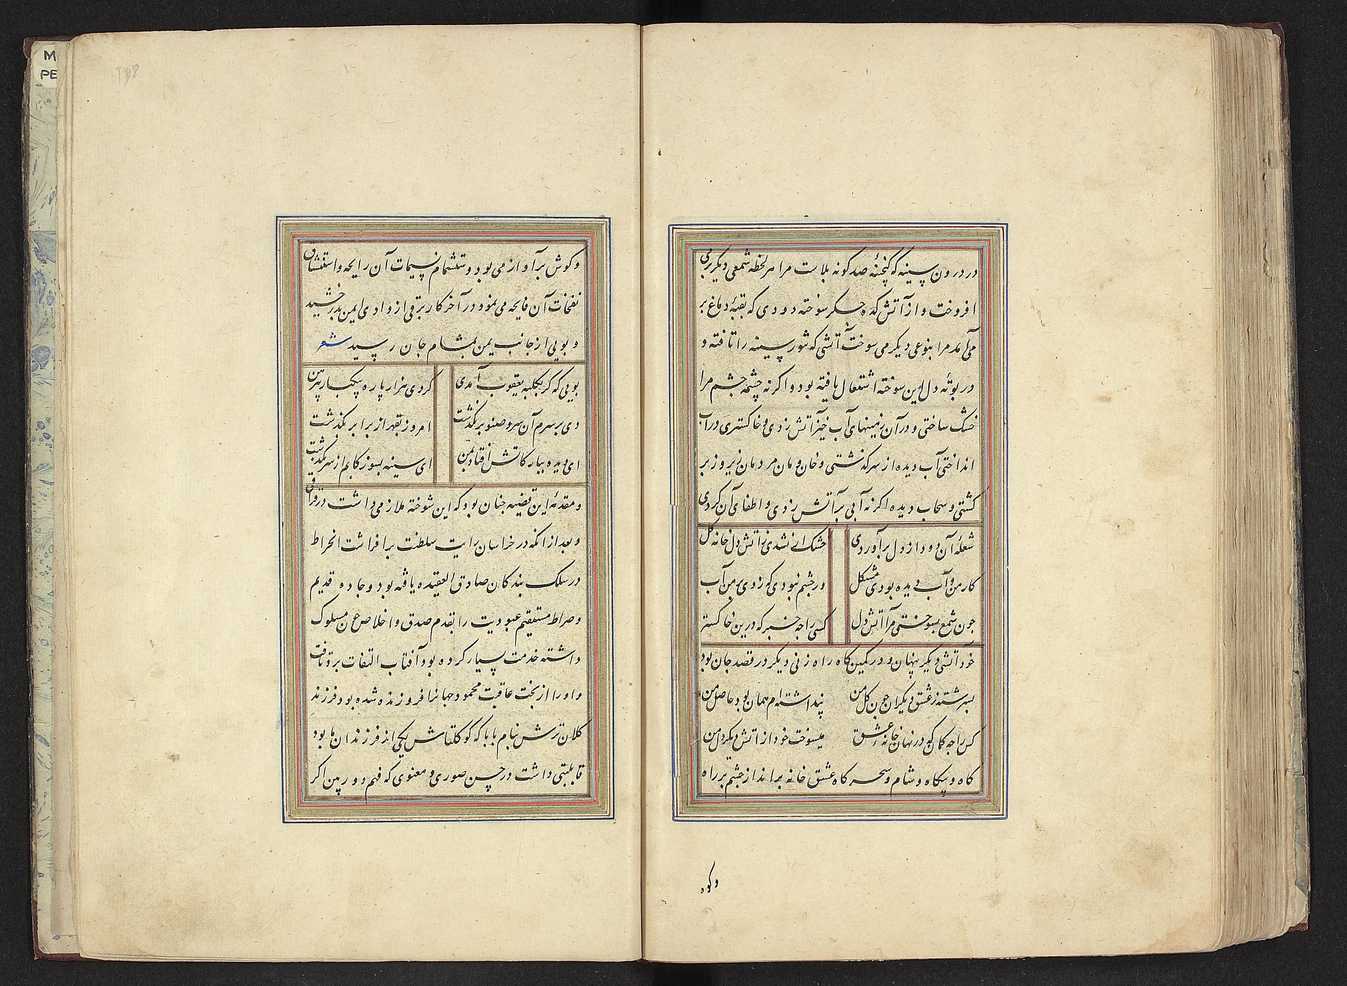 در درون سینه که گنجینهٔ صد گونه بلاست مرا هر لحظه شمعی دیگر بر می
افروخت و از آتش کده جگر سوخته دودی که بقیهٔ دماغ بر
می آمد مرا بنوعی دیگر می سوخت آتشی که شور سینه را تافته و
در بوتهٔ دل این سوخته اشتعال یافته بود و اگر نه چشمه چشم مرا
خشک ساختی و در آن زمینهای آب خیز آتش زدی و خاکستری در آب
انداختی آب دیده از سر گذشتی و خان و مان مردمان زیر و زبر
گشتی و سحاب دیده اگر نه آبی بر آتش زدی و اطفای آن کردی
شعلهٔ آن دود از دل بر آوردی خشک ار نشدی ز آتش دل خانه گل
کار من و آب دیده بودی مشکل ور چشم نبودی که زدی بر من آب
چون شمع بسوختی مرا آتش دل کسی را چه خبر که درین خاکستر
خود آتشی دیگر پنهان و در کمین گاه راه زنی دیگر در قصد جان بود
بسرشته ز عشق دیگران چون گل من پنداشته ام همان بود حاصل من
کس را چه گمان که در نهان خانه عشق میسوخت خود از آتش دیگر دل من
گاه و بیگاه و شام و سحر گاه عشق خانه بر انداز چشم بر راه
و گوش
و گوش بر آواز می بود و تنشم از نسیمات آن رایحه و استنشاق
نفحات آن فایحه می نمود در آخر کار برقی از وادی ایمن بدرخشید
و بویی از جانب یمن بمشام جان رسید شعر
بویی که گر بکلبه یعقوب آمدی کردی هزار پاره پیکبار پیرهن
دی بر سرم آن سرو صنوبر بگذشت امروز بقهر از برابر بگذشت
ای دیده بیار کآتش افتاد بمن ای سینه بسوز کآبم از سر بگذشت
و مقدمهٔ این قضیه چنان بود که این سوخته ملازمی داشت
و بعد از آنکه در خراسان رایت سلطنت بر افراشت انخراط
در سلک بندگان صادق العقیده یافته بود و جاده قدیم
و صراط مستقیم عبودیت را بقدم صدق و اخلاص من مسلوک
داشته خدمت بسیار کرده بود آفتاب التفات بر و تافت
و او را از بخت عاقبت محمود جهانرا فروزنده شده بود فرزند
کلان ترش بنام بابا که کوکلتاش یکی از فرزندان ما بود
قابلیتی داشت در حسن صوری و معنوی که فهم دور بین اگر